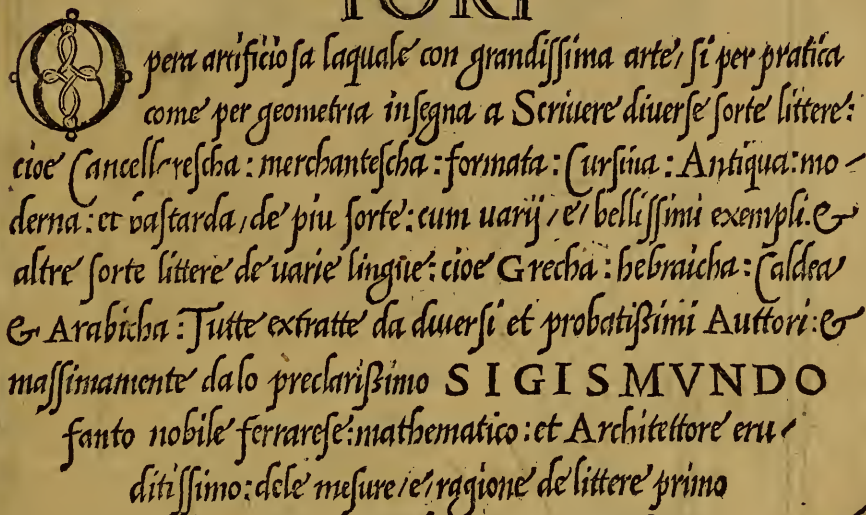 TORI
Opera artificiosa laquale con grandissima arte, si per pratica
come per geometria insegna a Scriuere diuerse sorte littere:
cioe Cancellerescha: merchantescha: formata: Cursiua: Antiqua: mo-
derna: et bastarda, de piu sorte: cum uarij, e, bellissimi exempli. &
altre sorte littere de uarie lingue: cioe Grecha: hebraicha: Caldea
& Arabicha: Tutte extratte da diuersi et probatißimi Auttori: &
massimamente dalo preclarißimo SIGISMVNDO
fanto nobile ferrarese: mathematico: et Architettore eru-
ditissimo: dele mesure, e, ragione de littere primo